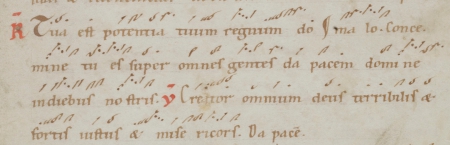 R Tua est potentia tuum regnum do
mine tu es super omnes gentes da pacem domi ne
indiebus nostris. V Creator omnium deus terribilis &
fortis iustus & mise ricors. Da pacē.